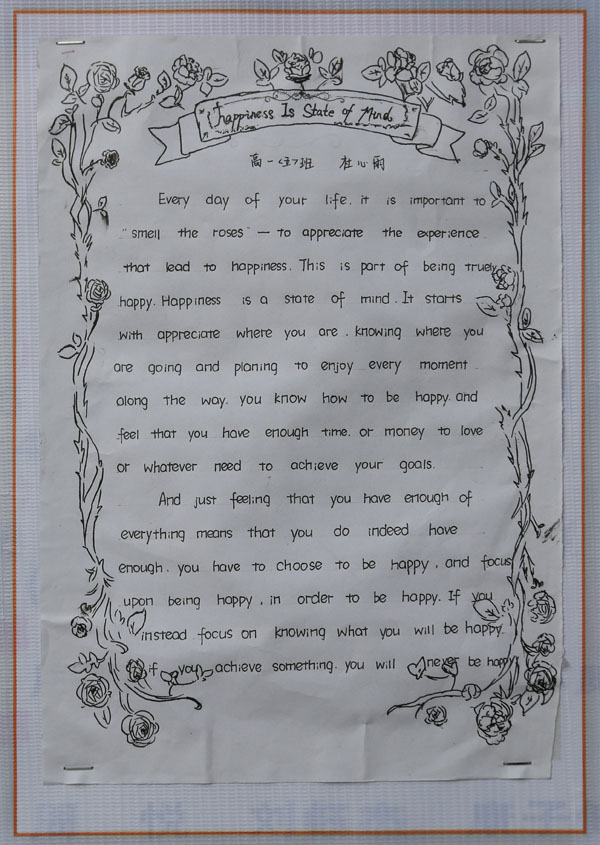 Happiness Is State of Mind
高一<7>班 杜心雨
Every day of your life. it is important to
"smell the roses" — to appreciate the experience
that lead to happiness. This is part of being truely
happy. Happiness is a state of mind. It starts
with appreciate where you are. knowing where you
are going and planing to enjoy every moment
along the way. you know how to be happy. and
feel that you have enough time. or money to love
or whatever need to achieve your goals.
And just feeling that you have enough of
everything means that you do indeed have
enough. you have to choose to be happy, and focus
upon being happy, in order to be happy. If you
instead focus on knowing what you will be happy
if you achieve something. you will never be happy